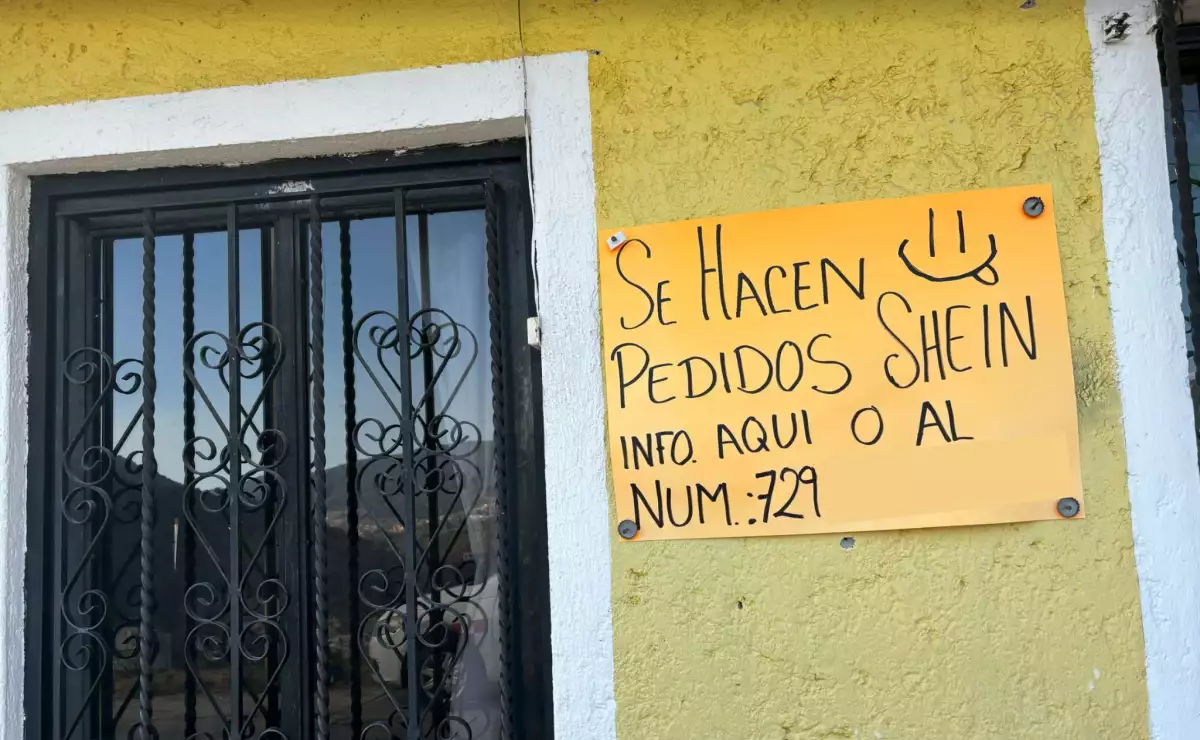 SE HACEN
PEDIDOS SHEIN
INFO. AQUI O AL
NUM.:729